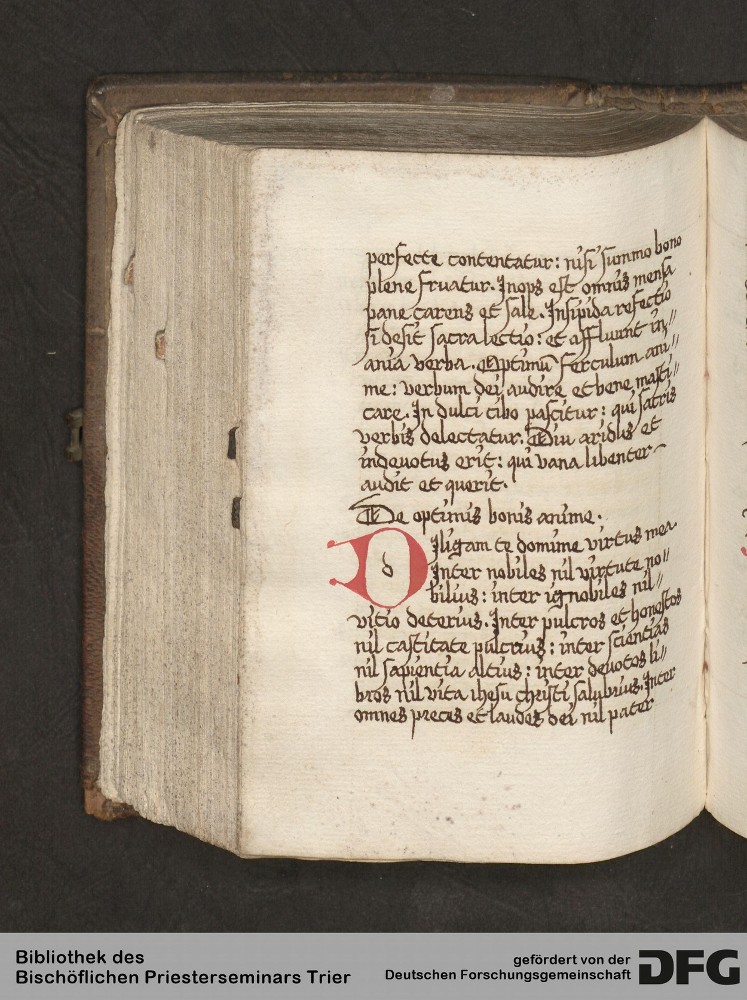 perfecte contentatur: nisi summo bono
plene fruatur. Inops est omnis mensa
pane carens et sale. Insipida refectio
si desit sacra lectio: et affluunt in⸗
ania verba. Optimū ferculum ani⸗
me: verbum dei audire et bene masti⸗
care. In dulci cibo pascitur: qui sacris
verbis delectatur. Diu aridus et
indevotus erit: qui vana libenter
audit et querit.
De optimis bonis anime.
Diligam te domine virtus mea
Inter nobiles nil virtute no⸗
bilius: inter ignobiles nil⸗
vitio deterius. Inter pulcros et honestos
nil castitate pulcrius: inter scientias
nil sapientia altius: inter devotos li⸗
bros nil vita ihesu christi salubrius. Inter
omnes preces et laudes dei nil pater
Bibliothek des
Bischöflichen Priesterseminars Trier
gefördert von der
Deutschen Forschungsgemeinschaft
DFG